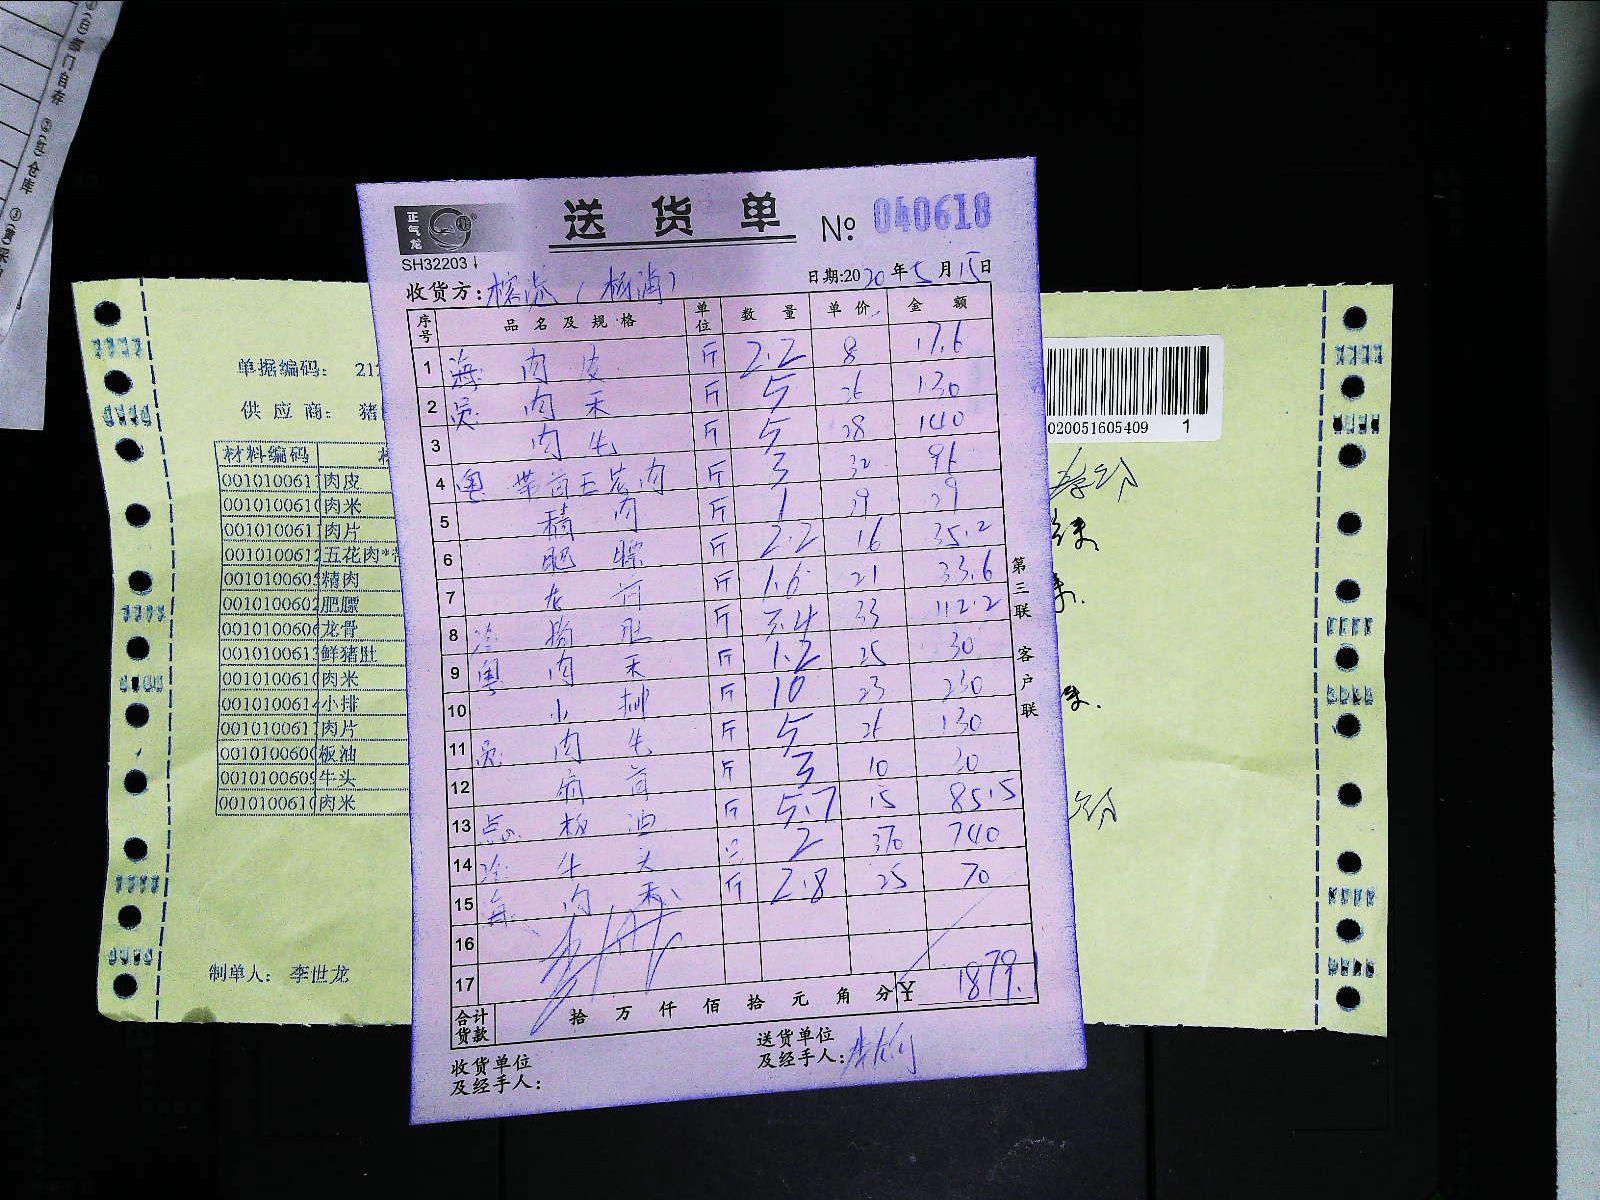 正气龙
送货单
№ 040618
SH32203
收货方:
日期:2020年5月15日
序号 品名及规格 单位 数量 单价 金额
1 海 肉皮 斤 2.2 8 17.6
2 肉米 斤 5 26 130
3 肉 斤 5 28 140
4 粤 带 五花肉 斤 3 32 96
5 精肉 斤 1 29 29
6 肥膘 斤 2.2 16 35.2
7 龙骨 斤 1.6 21 33.6
8 肚 斤 3.4 33 112.2
9 粤 肉米 斤 1.2 25 30
10 小排 斤 10 23 230
11 肉 斤 5 26 130
12 斤 3 10 30
13 点心 板油 斤 5.7 15 85.5
14 牛头 只 2 370 740
15 海 肉米 斤 2.8 25 70
16
17
合计货款 拾万仟佰拾元角分 ¥ 1879.1
收货单位及经手人:
送货单位及经手人:
第三联 客户联
单据编码: 212
供应商: 猪
材料编码
0010100611 肉皮
0010100610 肉米
0010100611 肉片
0010100612 五花肉*
0010100605 精肉
0010100602 肥膘
0010100606 龙骨
0010100613 鲜猪肚
0010100610 肉米
0010100614 小排
0010100611 肉片
0010100600 板油
0010100609 牛头
0010100610 肉米
制单人: 李世龙
020051605409 1
部门自存 ②(红)仓库